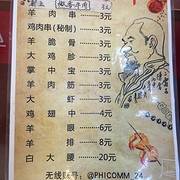 椒香牛肉
羊肉串 3元
鸡肉串(秘制) 3元
羊脆骨 3元
大鸡胗 3元
掌中宝 3元
羊肉筋 3元
大虾 3元
鸡翅中 4元
羊眼 6元
羊排 8元
白大腰 20元
无线账号：@PHICOMM_24